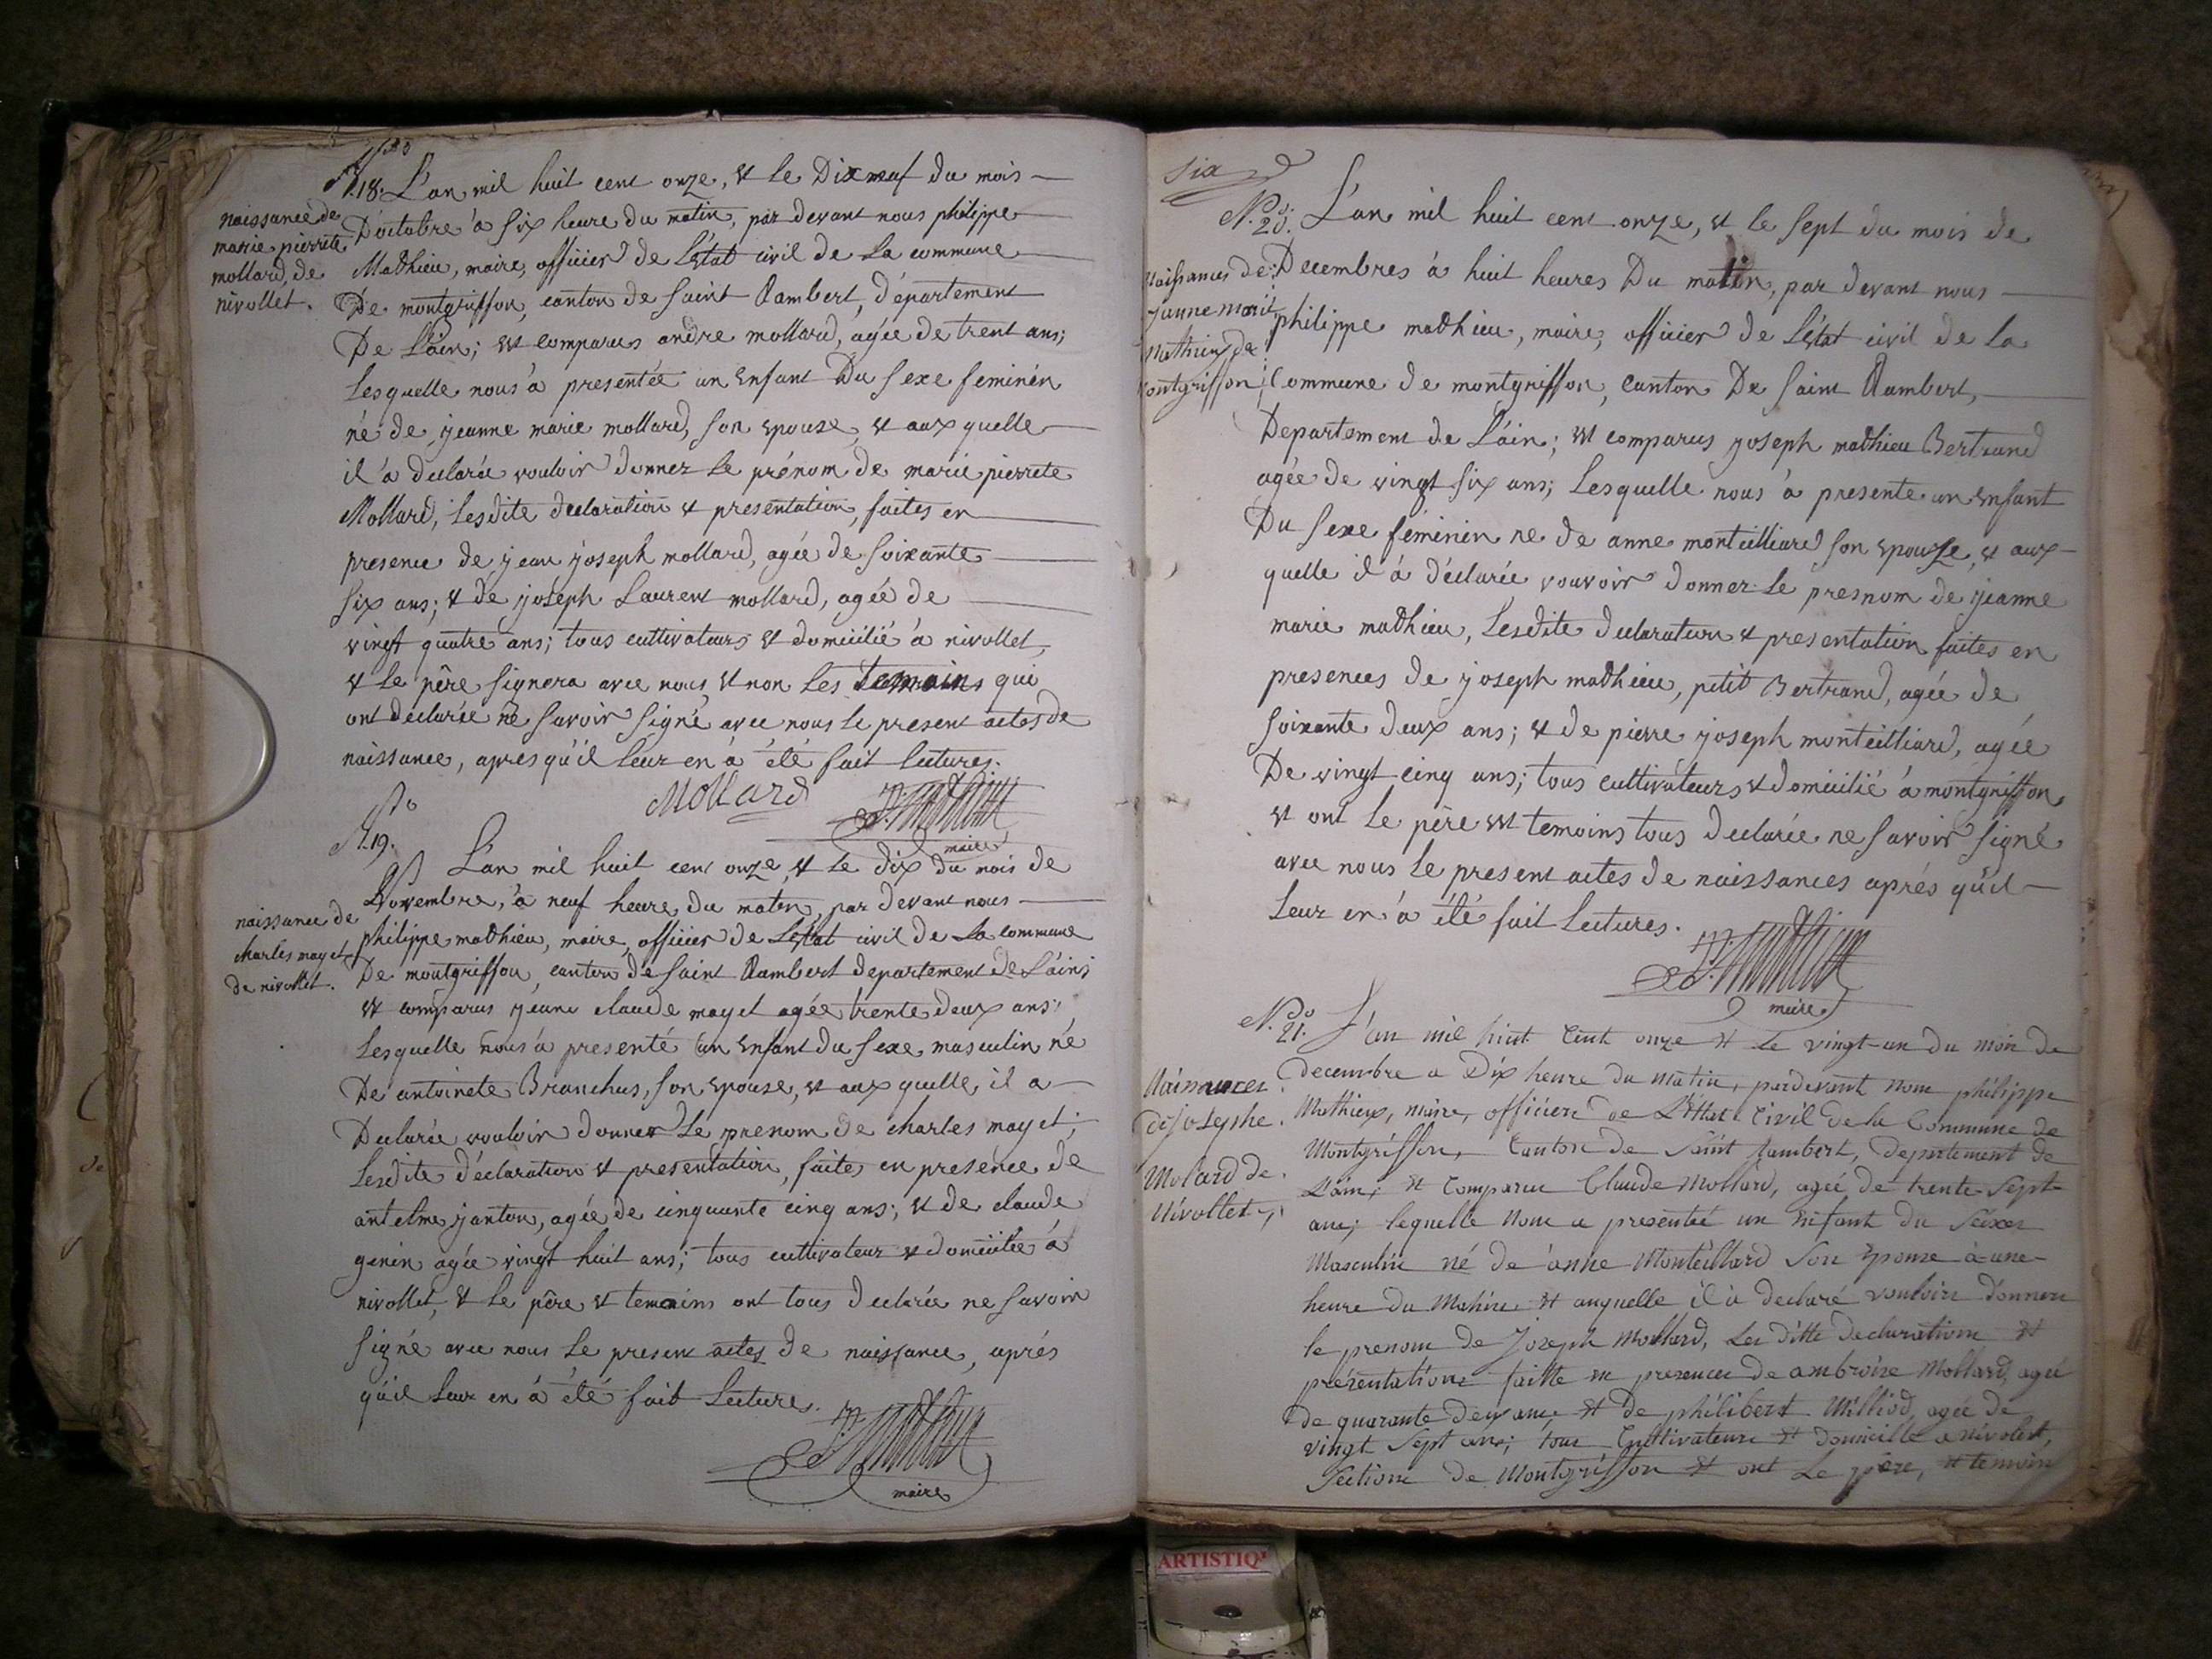 N.º 18. L'an mil huit cent onze, & le Dix neuf du mois
naissance de
marie pierrete
mollard, de
nivollet.
D'octobre à six heure du matin, par devant nous philippe
Mathieu, maire, officier de L'état civil de La commune
De montgriffon, canton de saint Rambert, département
De L'ain; est comparus andre mollard, agée de trent ans;
Lesquelle nous à presentée un enfant Du sexe feminin
né de jeanne marie mollard, son epouse, & aux quelle
il à declarée vouloir donner Le prénom de marie pierrete
Mollard, Lesdite declaration & presentation, faites en
presence de jean joseph mollard, agée de soixante
six ans; & de joseph Laurent mollard, agée de
vingt quatre ans; tous cultivateurs & domicilié à nivollet,
& Le père signera avec nous, & non Les temoins qui
ont declarée ne savoir signé avec nous Le present actes de
naissance, apres qu'il leur en à été fait lectures.
Mollard
maire
N.º 19.
L'an mil huit cent onze, & Le dix du mois de
Novembre, à neuf heure du maten, par devant nous
naissance de
charles mayet
de nivollet.
philippe mathieu, maire, officier de L'état civil de La commune
De montgriffon, canton de saint Rambert departement de L'ain;
est comparus jeane claude mayet agée trente deux ans;
Lesquelle nous à presenté un enfant du sexe masculin né
De antoinete Branchus, son epouse, & aux quelle il a
Declarée vouloir donner Le prenom de charles mayet;
Lesdite déclaration & presentation, faites en presence de
antelme janton, agée de cinquante cinq ans; & de claude
genin agée vingt huit ans; tous cultivateur & domicilée à
nivollet, & Le père & temoins ont tous declarée ne savoir
signé avec nous Le present actes de naissance, aprés
qu'il Leur en à été fait Lecture.
maire
six
N.º 20. L'an mil huit cent onze, & le sept du mois de
Naissances de
jeanne marie
Mathieu de
montgriffon
Decembres à huit heures Du matin, par devant nous
philippe mathieu, maire, officier de L'état civil de La
Commune de montgriffon, Canton De Saint Rambert,
Departement de L'ain; est comparus joseph mathieu Bertrand
agée de vingt six ans; Lesquelle nous à presente un enfant
Du sexe féminin ne de anne monteilliard son epouze, & aux
quelle il à déclarée vouvoir donner Le presnom de jeanne
marie mathieu, Lesdite declaration & presentation faites en
presences de joseph mathieu, petit Bertrand, agée de
soixante deux ans; & de pierre joseph monteilliard, agée
De vingt cinq ans; tous cultivateurs & domicilié à montgriffon,
& ont Le père est temoins tous declarée ne savoir signé
avec nous Le present actes de naissances aprés qu'il
Leur en à été fait Lectures.
maire
N.º 21. L'an mil huit cent onze & Le vingt-un du mois de
Naissances
de josephe
Molard de
Nivollet
decembre a Dix heure du Matin, pardevant nous philippe
Mathieu, maire, officiere de L'ettat Civil de la Commune de
Montgriffon, Canton de Saint Rambert, Departement de
L'ain; & Comparu Claude Mollard, ageé de trente Sept
ans; lequelle nous a presentée un Enfant du Sexes
Masculin né De anne Monteillard Son Epouse à une
heure du Matin & auquelle il à declaré vouloire Donnere
le prenom de Joseph Mollard, Les ditte declaration &
présentation faitte en presences de ambroise Mollard, ageé
de quarante Deux ans & de philibert Milliod ageé de
vingt Sept ans; tous Cultivateurs & domicillé a nivolet,
Sections de Montgriffon & ont Le père, & temoins
ARTISTIQ